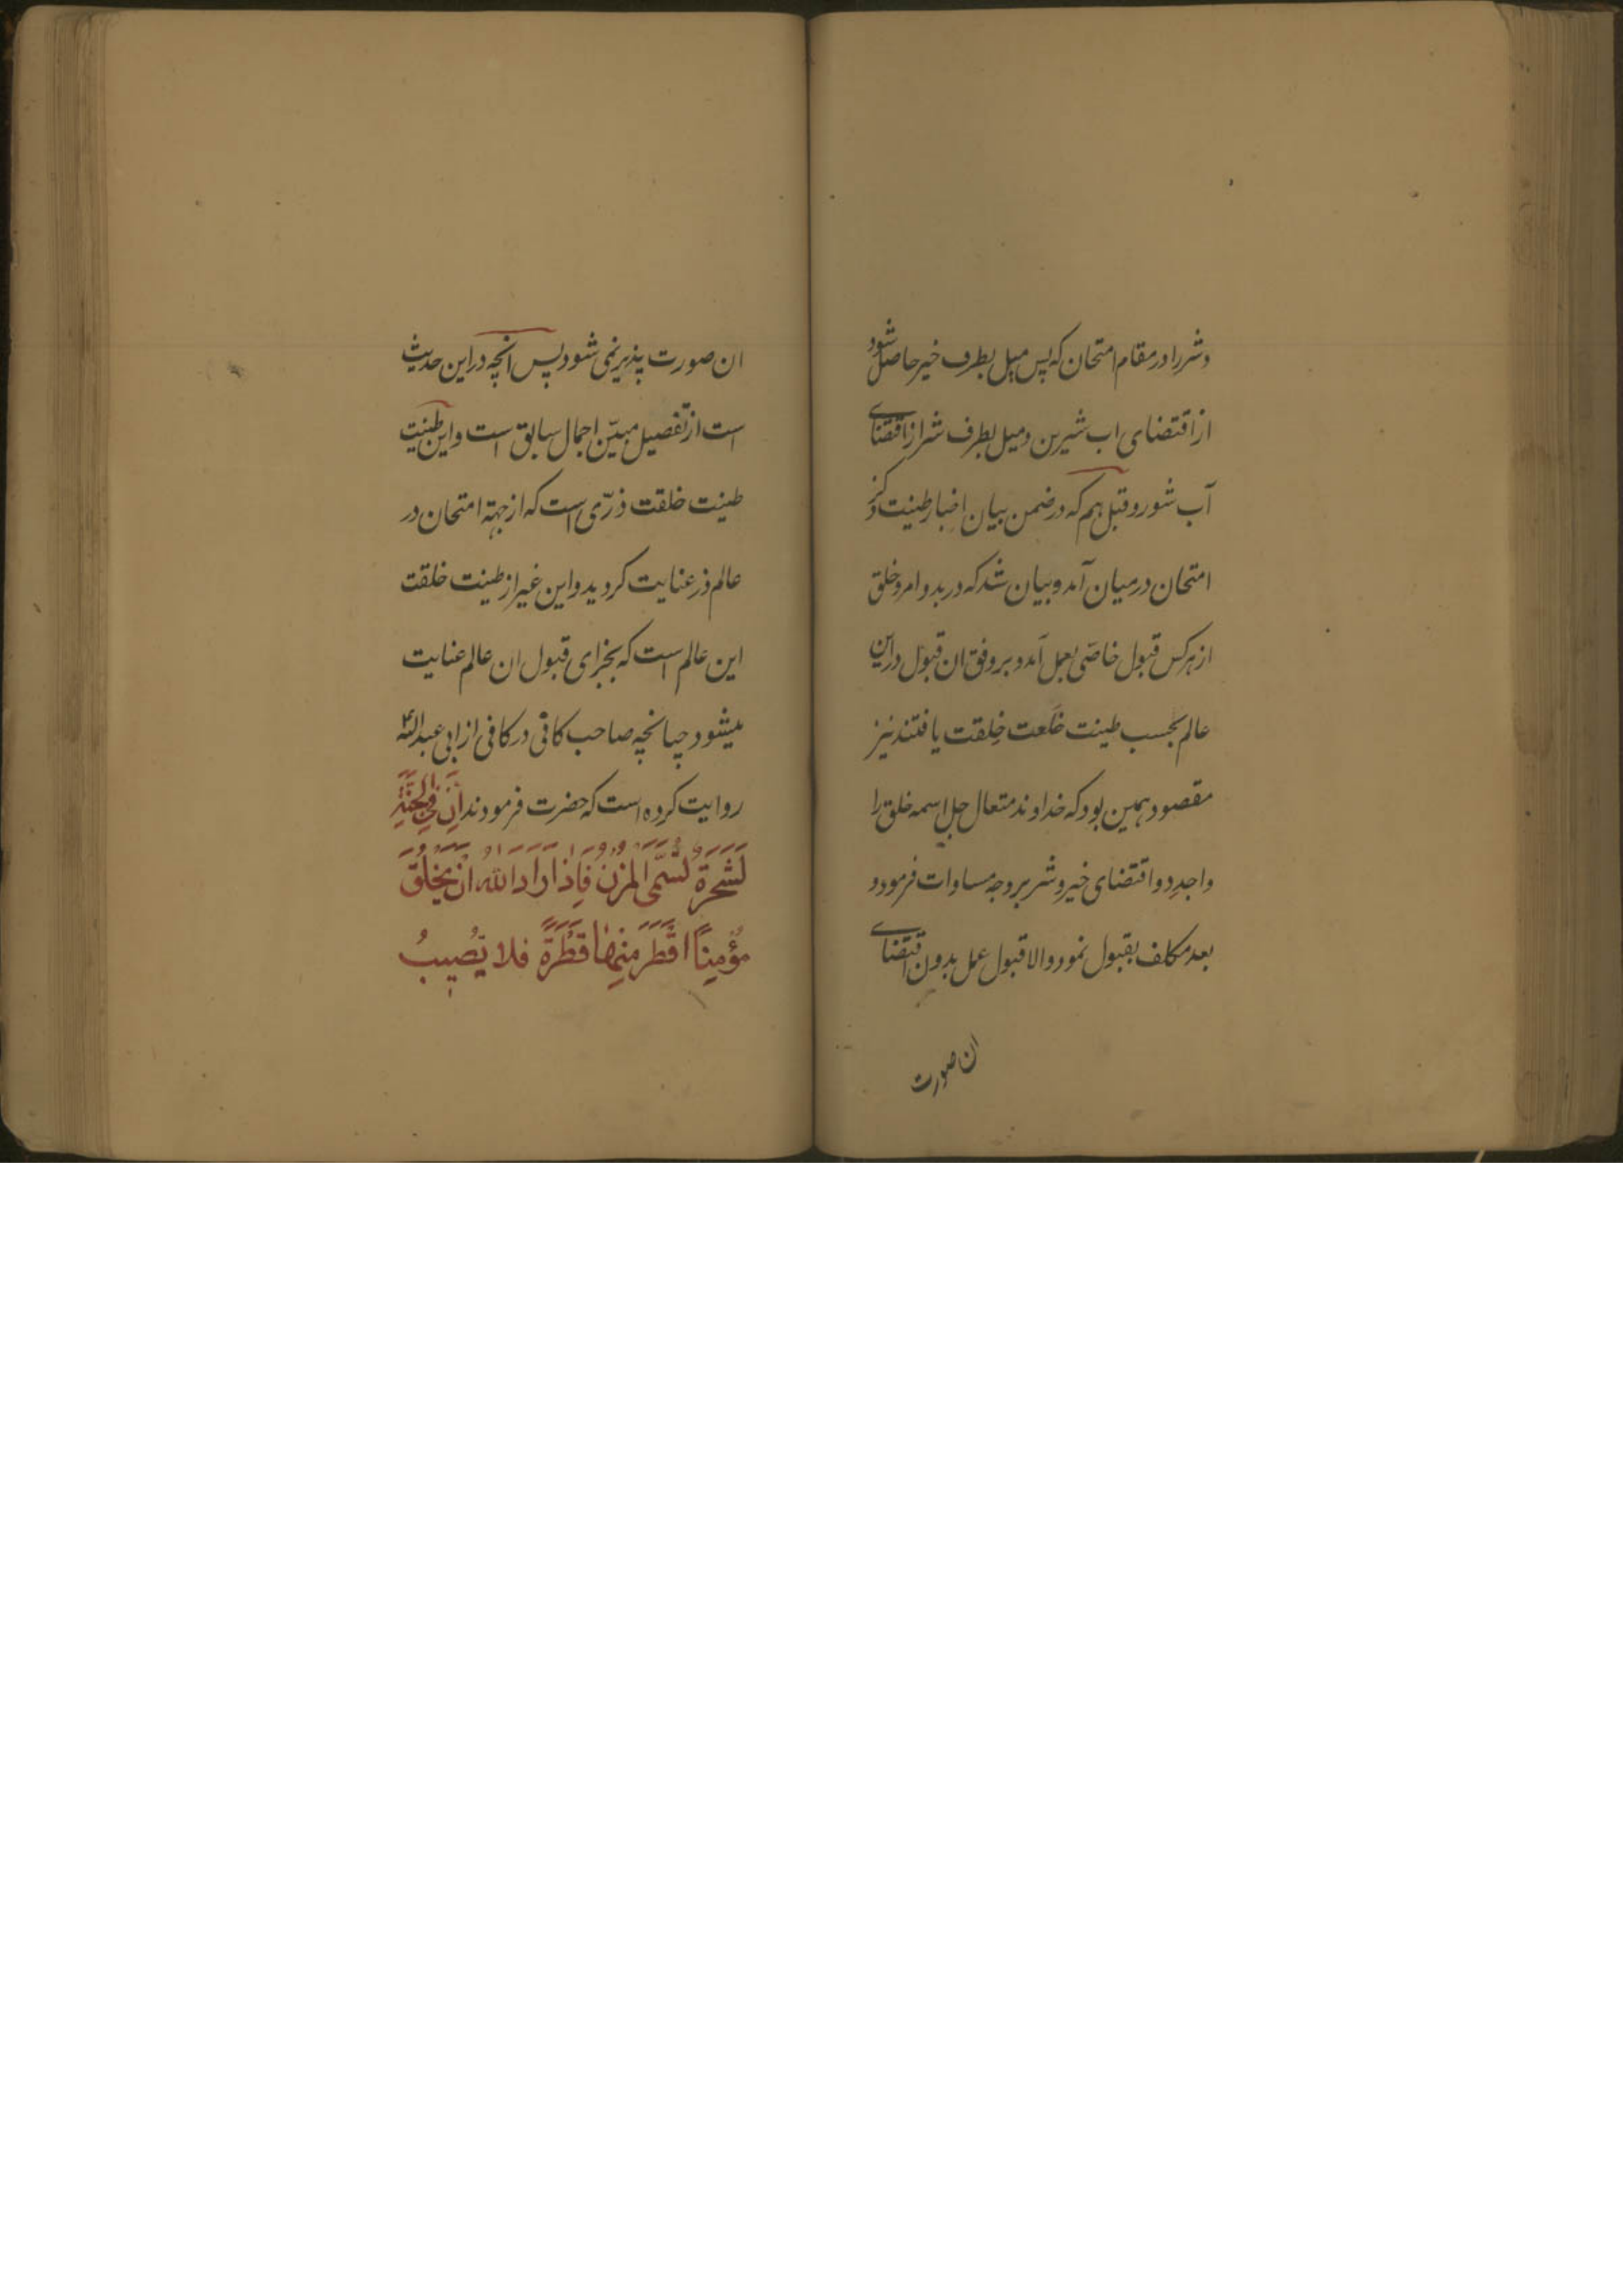 وشر را در مقام امتحان که پس میل بطرف خیر حاصل شود
از اقتضای اب شیرین و میل بطرف شر از اقتضای
آب شور و قبل هم که در ضمن بیان اخبار طینت ذکر
امتحان در میان آمد و بیان شد که در بدو امر و خلق
از هر کس قبول خاصّی بعمل آمد و بر وفق ان قبول در این
عالم بحسب طینت خلعت خلقت یافتند نیز
مقصود همین بود که خداوند متعال جل اسمه خلق را
واجد دو اقتضای خیر و شر بر وجه مساوات فرمود و
بعد مکلف بقبول نمود و الا قبول عمل بدون اقتضای
ان صورت
ان صورت پذیر نمی شود پس انچه در این حدیث
است از تفصیل مبیّن اجمال سابق است و این طینت
طینت خلقت ذرّی است که از جهة امتحان در
عالم ذر عنایت کردید و این غیر از طینت خلقت
این عالم است که بجزای قبول ان عالم عنایت
میشود چنانچه صاحب کافی در کافی از ابی عبدالله ع
روایت کرده است که حضرت فرمودند اِنَّ فِی الجَنَّةِ
لَشَجَرَةً تُسَمَّی المُزنُ فَاِذا اَرادَ اللهُ اَنْ یَخْلُقَ
مُؤْمِناً اَقْطَرَ مِنها قَطْرَةً فلا تُصیبُ